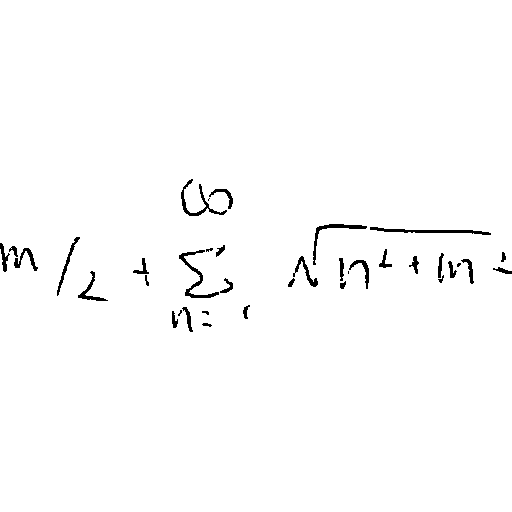 m/2 + \sum_{n=1}^{\infty} \sqrt{n^2 + m^2}